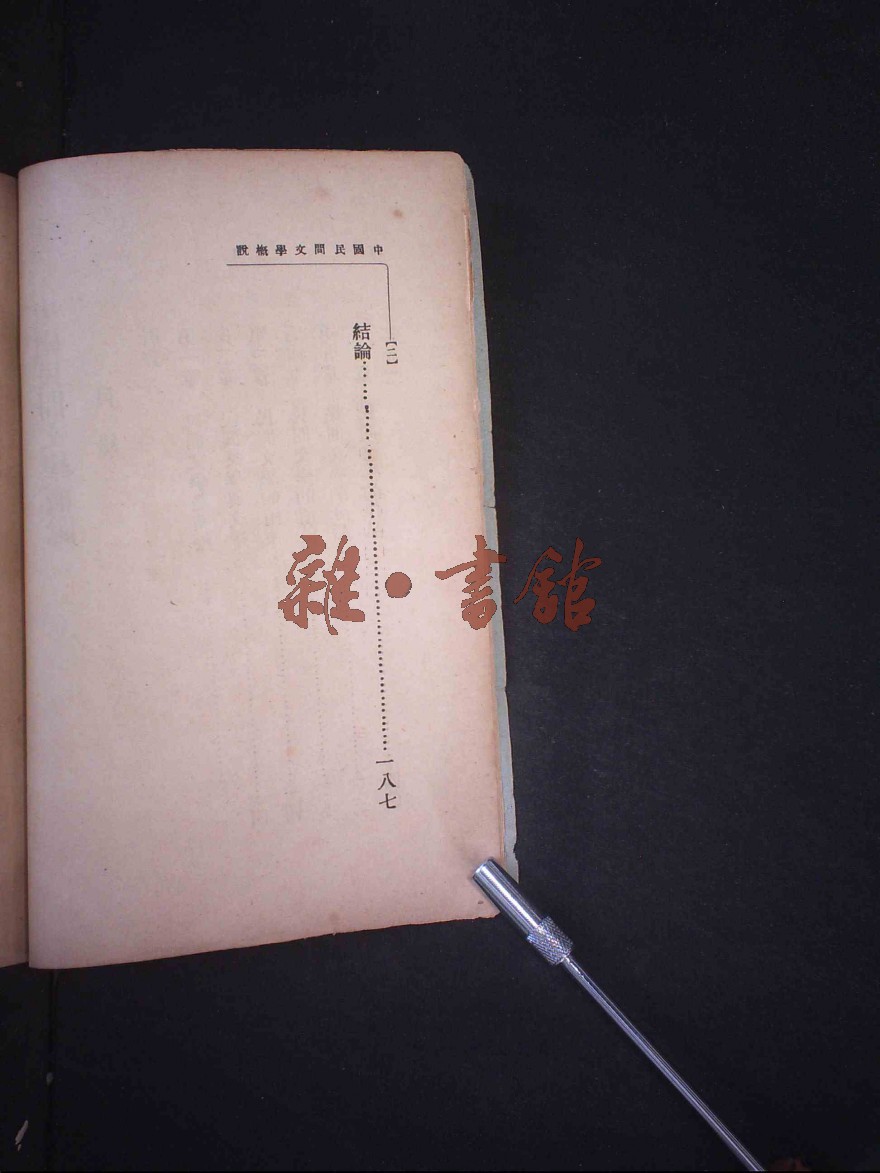 中國民間文學概說
【二】
結論…………………………一八七
雜·書館